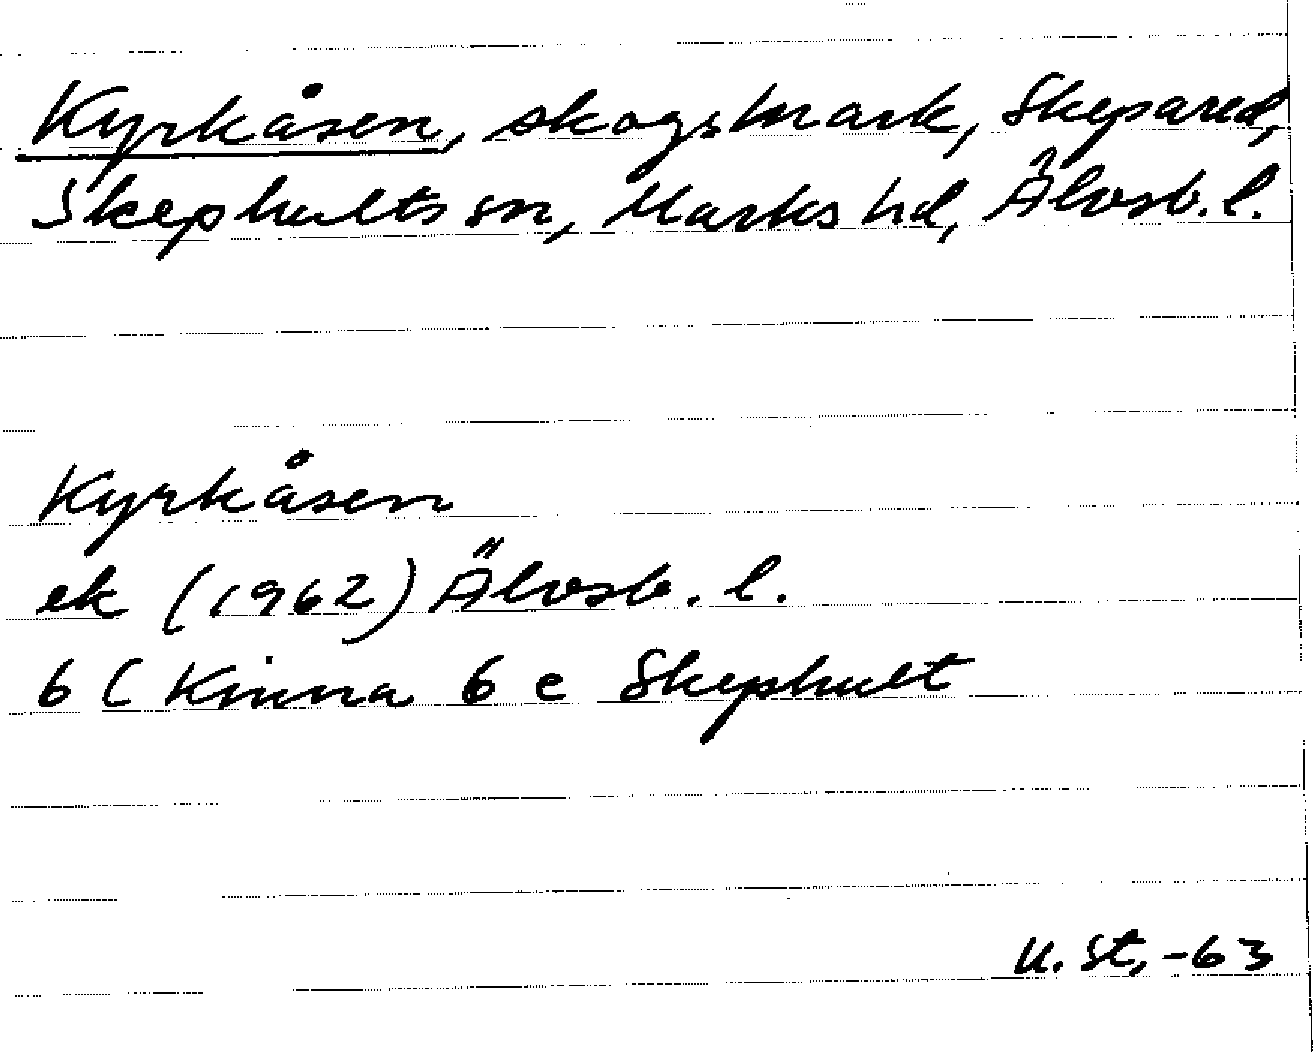 Kyrkåsen, skogsmark, Skepared,
Skephults sn, Marks hd, Älvsb. l.
Kyrkåsen
ek (1962) Älvsb. l.
6 C Kinna 6 e Skephult
U. St, -63